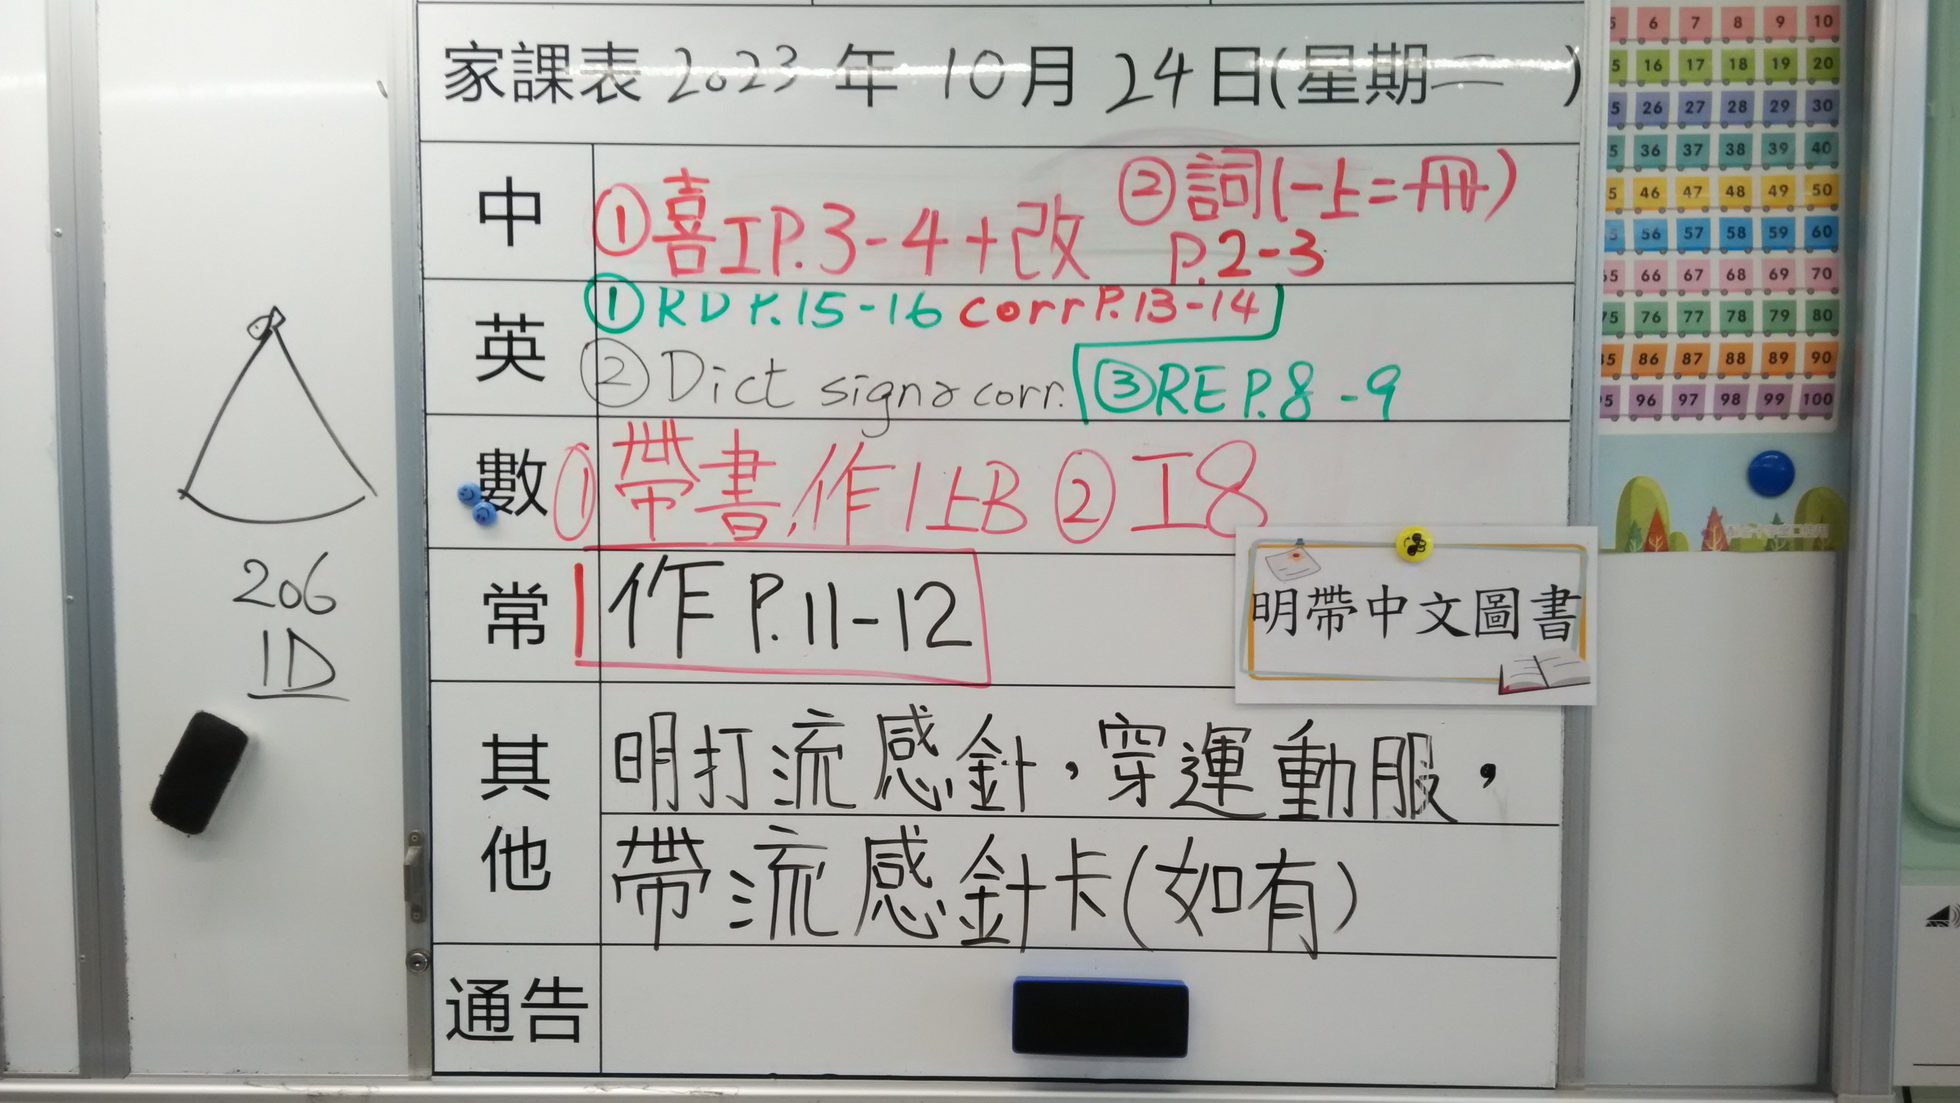 家課表 2023 年 10 月 24 日(星期二)
中
①喜工P.3-4+改
②詞(一上二冊)
P.2-3
英
①RD P.15-16 corr P.13-14
②Dict sign & corr.
③RE P.8-9
數
①帶書,作1上B ②工8
常
作 P.11-12
明帶中文圖書
其他
明打流感針,穿運動服,
帶流感針卡(如有)
通告
206
1D
5 6 7 8 9 10
5 16 17 18 19 20
5 26 27 28 29 30
5 36 37 38 39 40
5 46 47 48 49 50
5 56 57 58 59 60
65 66 67 68 69 70
75 76 77 78 79 80
85 86 87 88 89 90
95 96 97 98 99 100